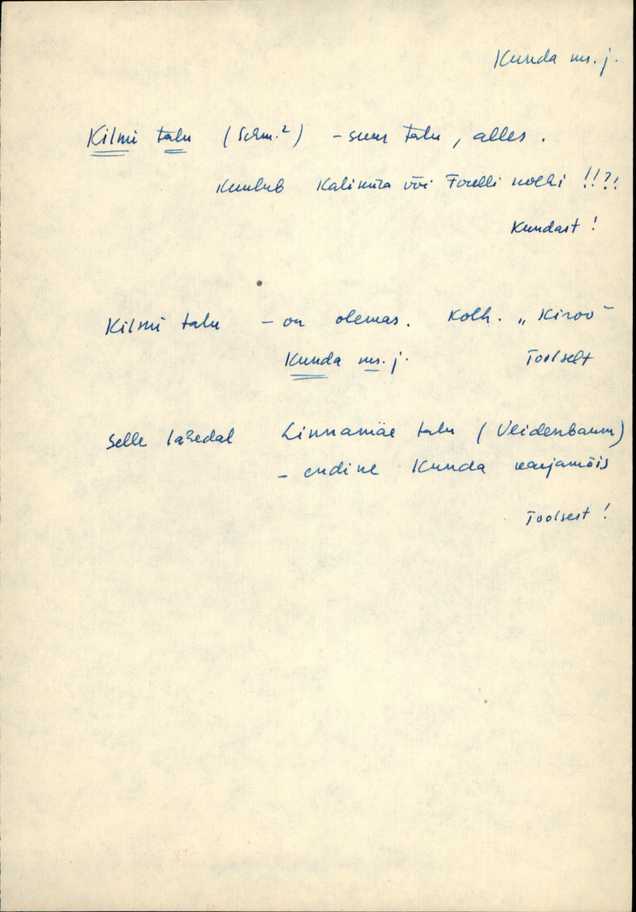 Kunda ms. j.
Kilmi talu (Schm.²) - suur talu, alles.
Kuulub Kalimra või Forelli kolhi !!?!
Kundast!
Kilmi talu - on olemas. Kolh. „Kirov"
Kunda ms. j. Toolselt
Selle lähedal Linnamäe talu (Veidenbaum)
- endine Kunda karjamõis
Toolsest!